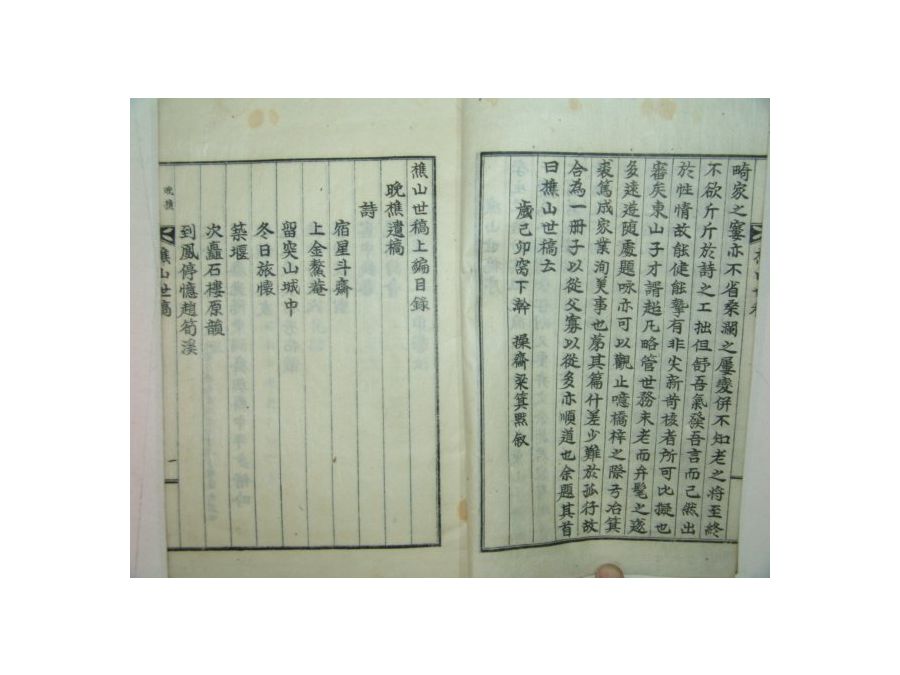 畸家之窶亦不省桑瀾之屢變倂不知老之將至終
不欲斤斤於詩之工拙但舒吾氣發吾言而已然出
於性情故能健能摯有非尖新苛核者所可比擬也
審矣東山子才諝超凡略管世務未老而弁髦之遂
多遠遊隨處題咏亦可以觀止噫橋梓之際方冶箕
裘篤成家業洵美事也第其篇什差少難於孤行故
合為一册子以從父寡以從多亦順道也余題其首
曰樵山世稿云
歲己卯窩下澣 操齋梁箕㷡敘
樵山世稿上編目錄
晚樵遺稿
詩
宿星斗齋
上金鰲菴
留突山城中
冬日旅懷
築堰
次矗石樓原韻
到鳳停憶趙筍溪
晚樵
樵山世稿
一